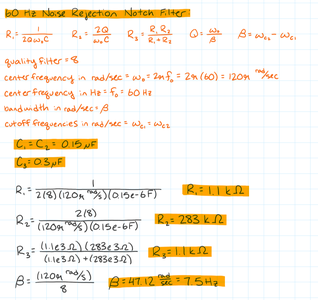 60 Hz Noise Rejection Notch Filter
R₁ = 1 / 2Qω₀C R₂ = 2Q / ω₀C R₃ = R₁R₂ / R₁+R₂ Q = ω₀ / β β = ω_c₂ - ω_c₁
quality filter = 8
center frequency in rad/sec = ω₀ = 2πf₀ = 2π(60) = 120π rad/sec
center frequency in Hz = f₀ = 60 Hz
bandwidth in rad/sec = β
cutoff frequencies in rad/sec = ω_c₁ = ω_c₂
C₁ = C₂ = 0.15 μF
C₃ = 0.3 μF
R₁ = 1 / 2(8)(120π rad/s)(0.15e-6F) R₁ = 1.1 kΩ
R₂ = 2(8) / (120π rad/s)(0.15e-6F) R₂ = 283 kΩ
R₃ = (1.1e3Ω)(283e3Ω) / (1.1e3Ω)+(283e3Ω) R₃ = 1.1 kΩ
β = (120π rad/s) / 8 β = 47.12 rad/sec = 7.5 Hz